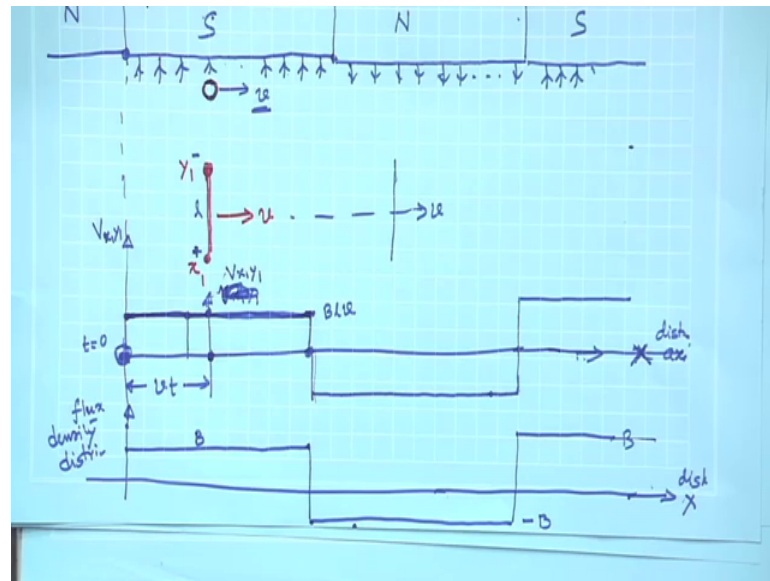 N S N S
v
y₁ -
l v v
+
x₁
Vx₁y₁
Vx₁y₁
Blv
t=0
dist
axi
vt
flux
density
distri-
B B
dist
X
-B